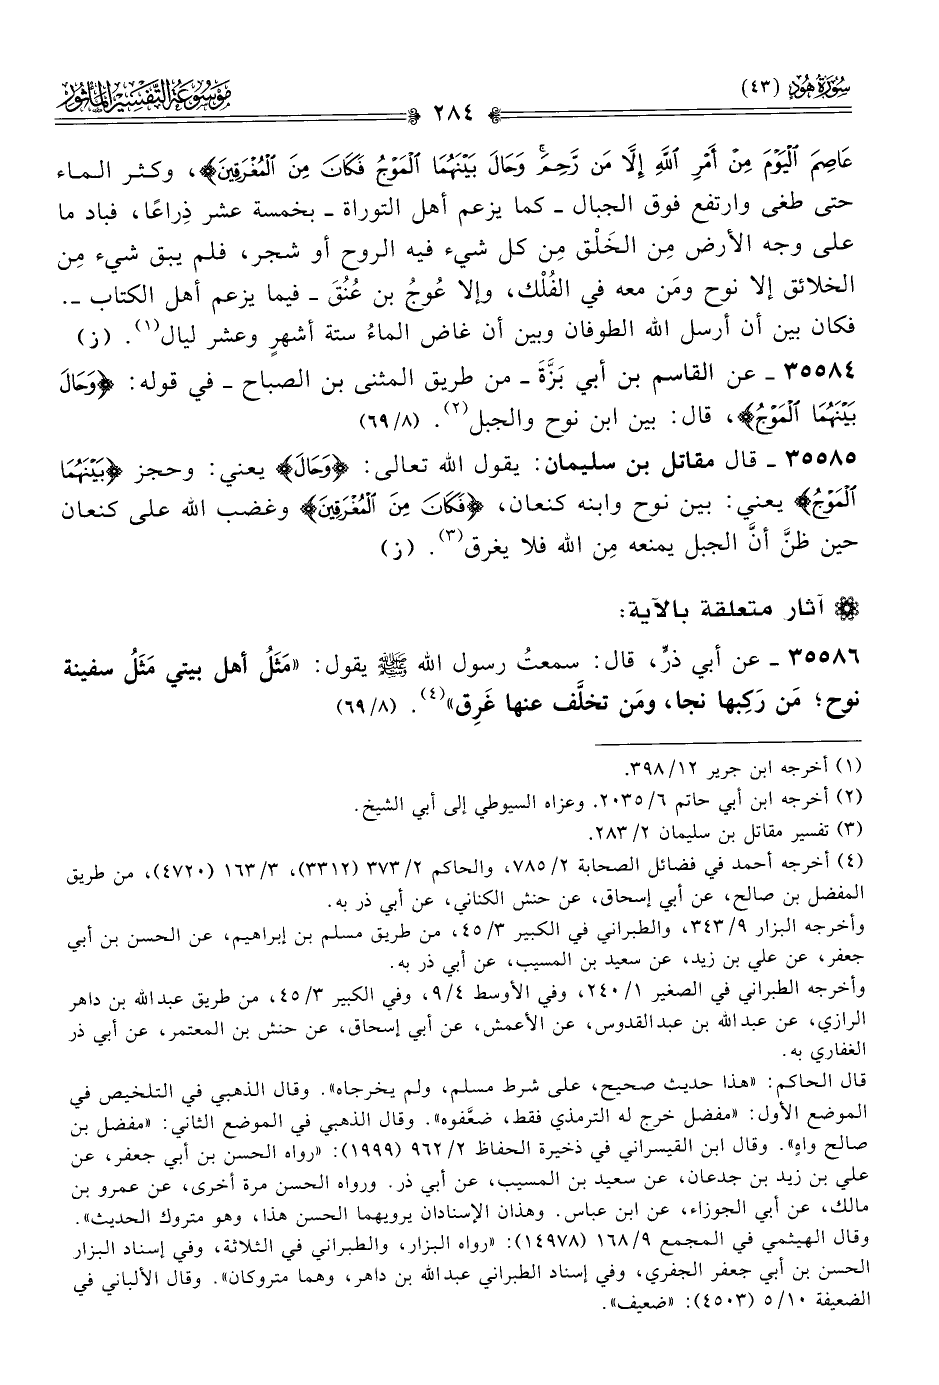 سُورَةُ هُودٍ (٤٣)
٢٨٤
مَوْسُوعَةُ التَّفْسِيرِ المَأْثُور
عَاصِمَ الْيَوْمَ مِنْ أَمْرِ اللَّهِ إِلَّا مَن رَّحِمَ ۚ وَحَالَ بَيْنَهُمَا الْمَوْجُ فَكَانَ مِنَ الْمُغْرَقِينَ﴾، وكثر الماء
حتى طغى وارتفع فوق الجبال ـ كما يزعم أهل التوراة ـ بخمسة عشر ذِراعًا، فباد ما
على وجه الأرض مِن الخَلْق مِن كل شيء فيه الروح أو شجر، فلم يبق شيء مِن
الخلائق إلا نوح ومَن معه في الفُلْك، وإلا عُوجُ بن عُنُقَ ـ فيما يزعم أهل الكتاب ـ.
فكان بين أن أرسل الله الطوفان وبين أن غاض الماءُ ستة أشهرٍ وعشر ليال(١). (ز)
٣٥٥٨٤ ـ عن القاسم بن أبي بَزَّةَ ـ من طريق المثنى بن الصباح ـ في قوله: ﴿وَحَالَ
بَيْنَهُمَا الْمَوْجُ﴾، قال: بين ابن نوح والجبل(٢). (٦٩/٨)
٣٥٥٨٥ ـ قال مقاتل بن سليمان: يقول الله تعالى: ﴿وَحَالَ﴾ يعني: وحجز ﴿بَيْنَهُمَا
الْمَوْجُ﴾ يعني: بين نوح وابنه كنعان، ﴿فَكَانَ مِنَ الْمُغْرَقِينَ﴾ وغضب الله على كنعان
حين ظنَّ أنَّ الجبل يمنعه مِن الله فلا يغرق(٣). (ز)
آثار متعلقة بالآية:
٣٥٥٨٦ ـ عن أبي ذرٍّ، قال: سمعتُ رسول الله ﷺ يقول: «مَثَلُ أهل بيتي مَثَلُ سفينة
نوح؛ مَن رَكِبها نجا، ومَن تخلَّف عنها غَرِق»(٤). (٦٩/٨)
(١) أخرجه ابن جرير ١٢/ ٣٩٨.
(٢) أخرجه ابن أبي حاتم ٦/ ٢٠٣٥. وعزاه السيوطي إلى أبي الشيخ.
(٣) تفسير مقاتل بن سليمان ٢/ ٢٨٣.
(٤) أخرجه أحمد في فضائل الصحابة ٢/ ٧٨٥، والحاكم ٢/ ٣٧٣ (٣٣١٢)، ٣/ ١٦٣ (٤٧٢٠)، من طريق
المفضل بن صالح، عن أبي إسحاق، عن حنش الكناني، عن أبي ذر به.
وأخرجه البزار ٩/ ٣٤٣، والطبراني في الكبير ٣/ ٤٥، من طريق مسلم بن إبراهيم، عن الحسن بن أبي
جعفر، عن علي بن زيد، عن سعيد بن المسيب، عن أبي ذر به.
وأخرجه الطبراني في الصغير ١/ ٢٤٠، وفي الأوسط ٤/ ٩، وفي الكبير ٣/ ٤٥، من طريق عبدالله بن داهر
الرازي، عن عبدالله بن عبدالقدوس، عن الأعمش، عن أبي إسحاق، عن حنش بن المعتمر، عن أبي ذر
الغفاري به.
قال الحاكم: «هذا حديث صحيح، على شرط مسلم، ولم يخرجاه». وقال الذهبي في التلخيص في
الموضع الأول: «مفضل خرج له الترمذي فقط، ضعَّفوه». وقال الذهبي في الموضع الثاني: «مفضل بن
صالح واهٍ». وقال ابن القيسراني في ذخيرة الحفاظ ٢/ ٩٦٢ (١٩٩٩): «رواه الحسن بن أبي جعفر، عن
علي بن زيد بن جدعان، عن سعيد بن المسيب، عن أبي ذر. ورواه الحسن مرة أخرى، عن عمرو بن
مالك، عن أبي الجوزاء، عن ابن عباس. وهذان الإسنادان يرويهما الحسن هذا، وهو متروك الحديث».
وقال الهيثمي في المجمع ٩/ ١٦٨ (١٤٩٧٨): «رواه البزار، والطبراني في الثلاثة، وفي إسناد البزار
الحسن بن أبي جعفر الجفري، وفي إسناد الطبراني عبدالله بن داهر، وهما متروكان». وقال الألباني في
الضعيفة ١٠/ ٥ (٤٥٠٣): «ضعيف».